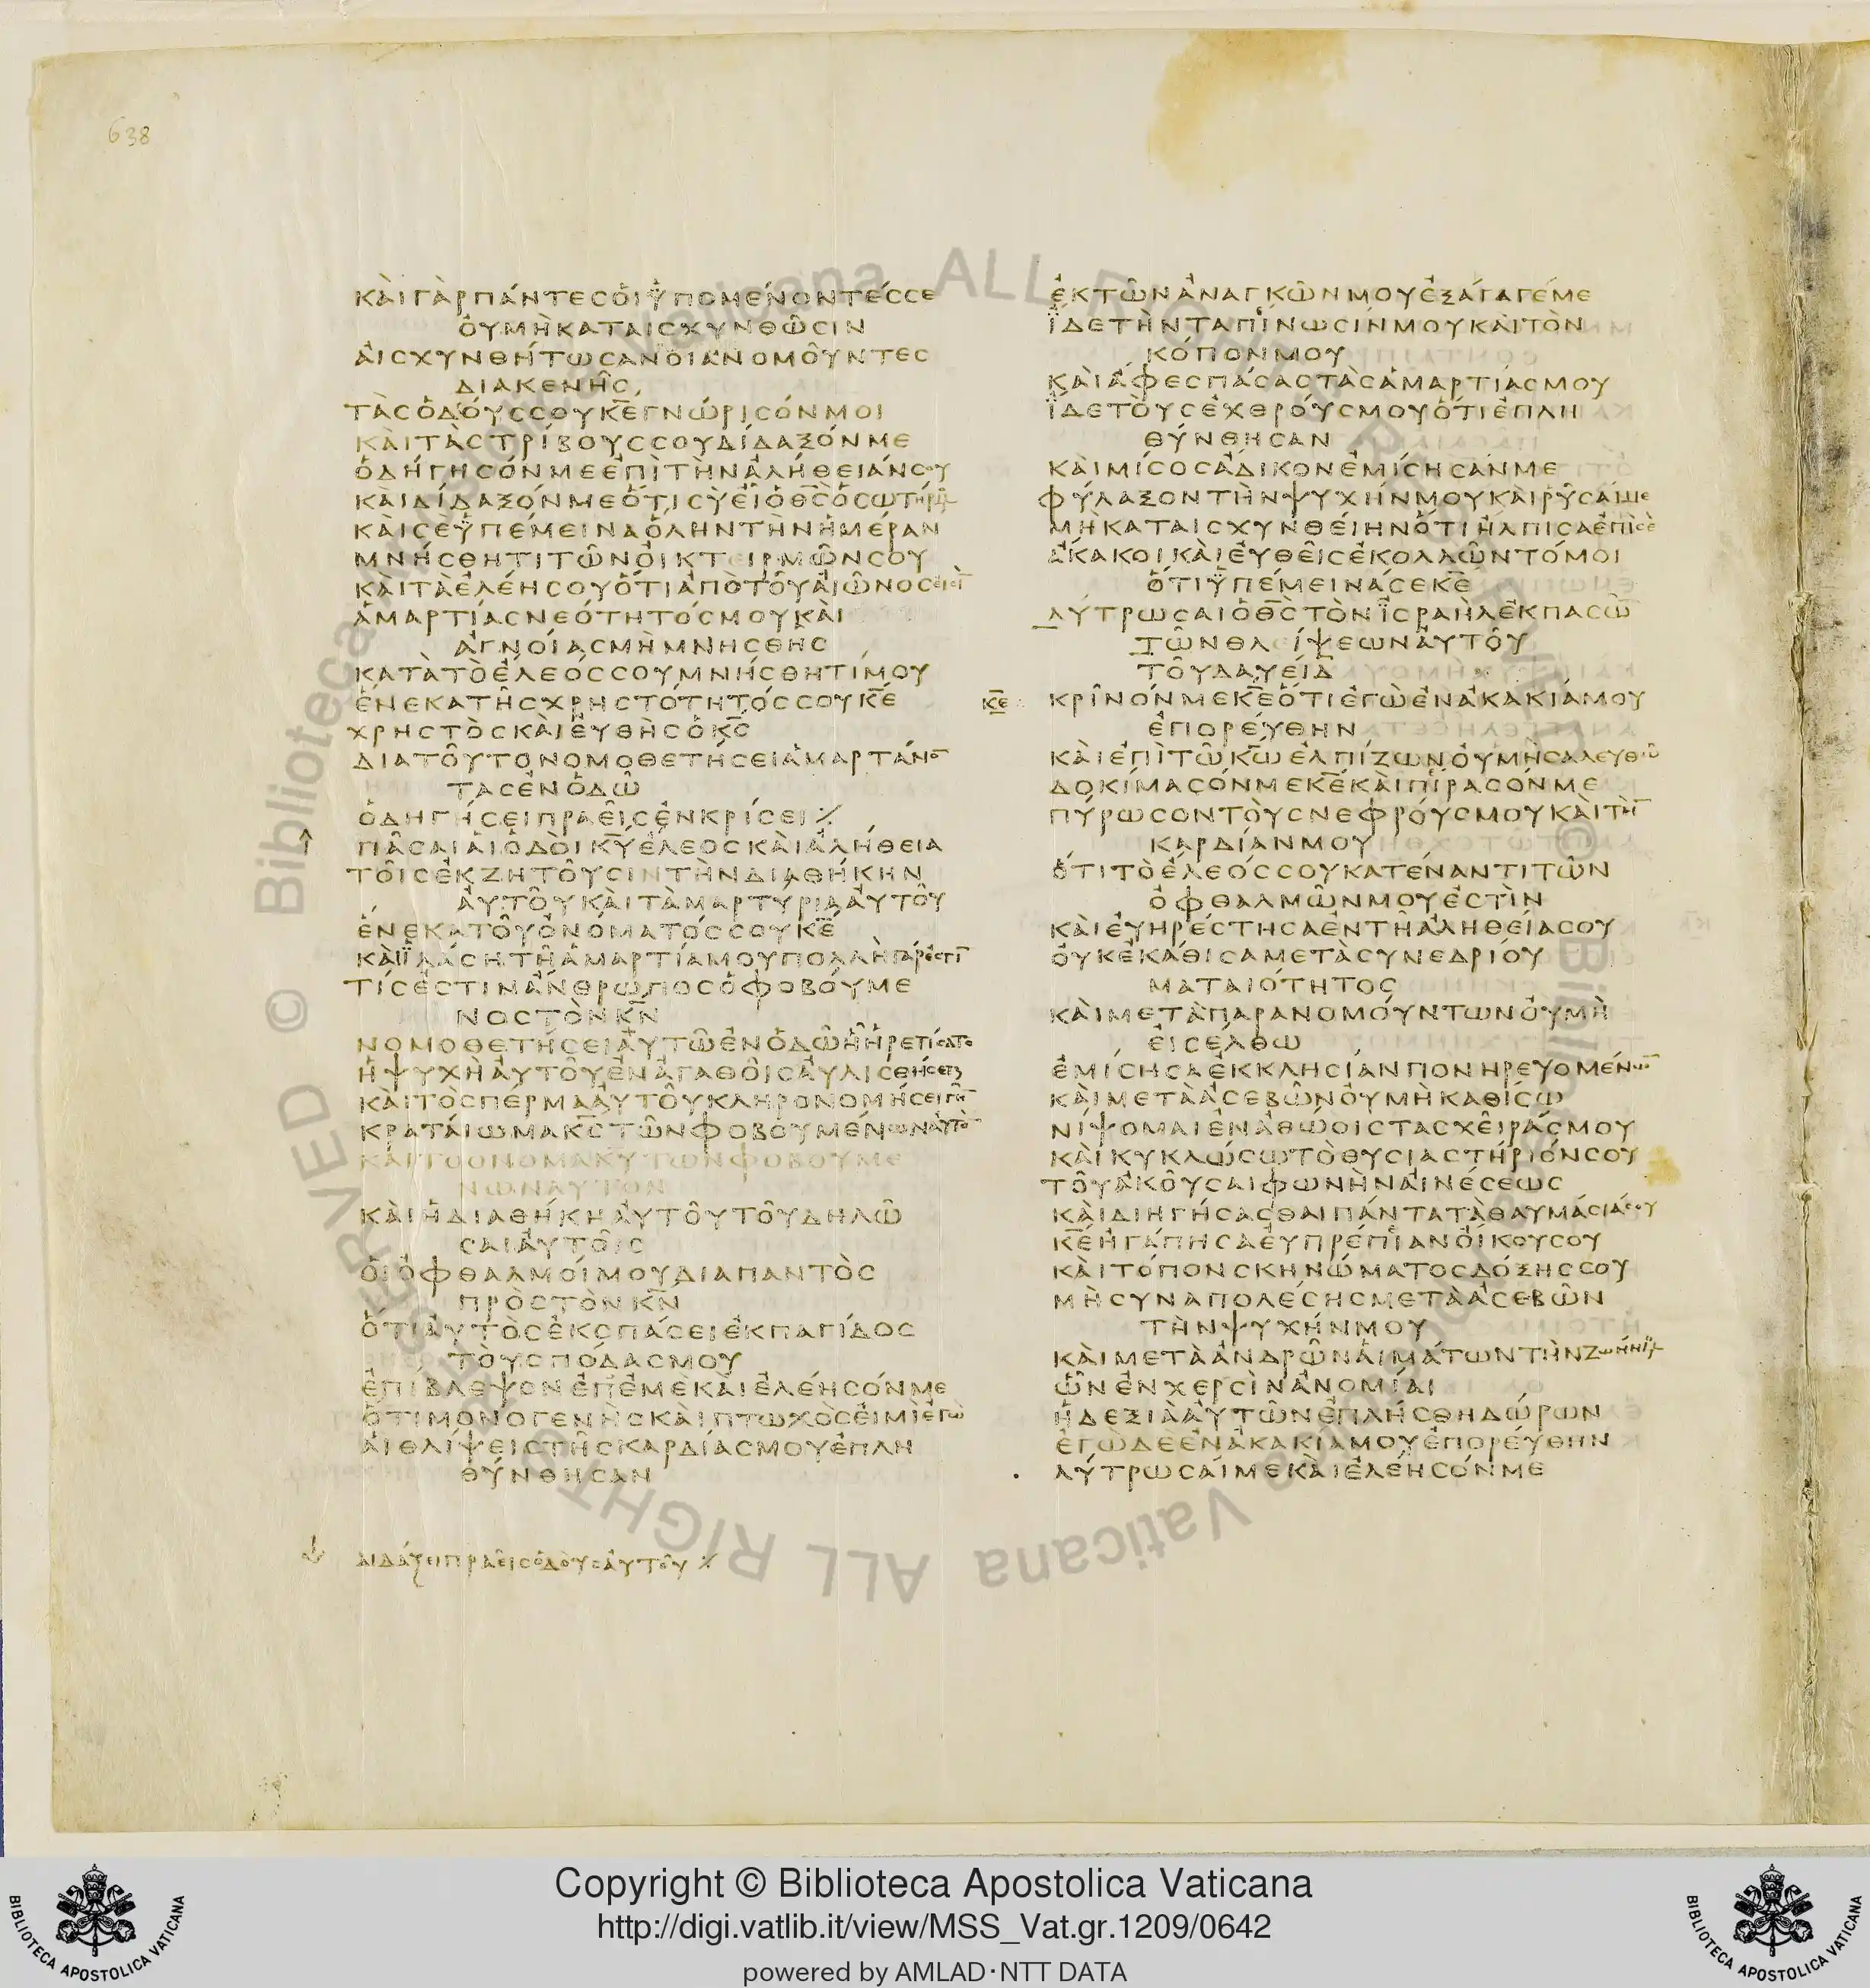 638
ΚΑΙΓΑΡΠΑΝΤΕΣΟΙΥΠΟΜΕΝΟΝΤΕΣΣΕ
ΟΥΜΗΚΑΤΑΙΣΧΥΝΘΩΣΙΝ
ΑΙΣΧΥΝΘΗΤΩΣΑΝΟΙΑΝΟΜΟΥΝΤΕΣ
ΔΙΑΚΕΝΗΣ
ΤΑΣΟΔΟΥΣΣΟΥΚ̅Ε̅ΓΝΩΡΙΣΟΝΜΟΙ
ΚΑΙΤΑΣΤΡΙΒΟΥΣΣΟΥΔΙΔΑΞΟΝΜΕ
ΟΔΗΓΗΣΟΝΜΕΕΠΙΤΗΝΑΛΗΘΕΙΑΝΣΟΥ
ΚΑΙΔΙΔΑΞΟΝΜΕΟΤΙΣΥΕΙΟΘ̅Σ̅ΟΣΩΤΗΡΜΟΥ
ΚΑΙΣΕΥΠΕΜΕΙΝΑΟΛΗΝΤΗΝΗΜΕΡΑΝ
ΜΝΗΣΘΗΤΙΤΩΝΟΙΚΤΕΙΡΜΩΝΣΟΥ
ΚΑΙΤΑΕΛΕΗΣΟΥΟΤΙΑΠΟΤΟΥΑΙΩΝΟΣΕΙΣΙ̅
ΑΜΑΡΤΙΑΣΝΕΟΤΗΤΟΣΜΟΥΚΑΙ
ΑΓΝΟΙΑΣΜΗΜΝΗΣΘΗΣ
ΚΑΤΑΤΟΕΛΕΟΣΣΟΥΜΝΗΣΘΗΤΙΜΟΥ
ΕΝΕΚΑΤΗΣΧΡΗΣΤΟΤΗΤΟΣΣΟΥΚ̅Ε̅
ΧΡΗΣΤΟΣΚΑΙΕΥΘΗΣΟΚ̅Σ̅
ΔΙΑΤΟΥΤΟΝΟΜΟΘΕΤΗΣΕΙΑΜΑΡΤΑΝΟ̅
ΤΑΣΕΝΟΔΩ
ΟΔΗΓΗΣΕΙΠΡΑΕΙΣΕΝΚΡΙΣΕΙ⁒
ΠΑΣΑΙΑΙΟΔΟΙΚ̅Υ̅ΕΛΕΟΣΚΑΙΑΛΗΘΕΙΑ
ΤΟΙΣΕΚΖΗΤΟΥΣΙΝΤΗΝΔΙΑΘΗΚΗΝ
ΑΥΤΟΥΚΑΙΤΑΜΑΡΤΥΡΙΑΑΥΤΟΥ
ΕΝΕΚΑΤΟΥΟΝΟΜΑΤΟΣΣΟΥΚ̅Ε̅
ΚΑΙΪΛΑΣΗΤΗΑΜΑΡΤΙΑΜΟΥΠΟΛΛΗΓΑΡΕΣΤΙ̅
ΤΙΣΕΣΤΙΝΑΝΘΡΩΠΟΣΟΦΟΒΟΥΜΕ
ΝΟΣΤΟΝΚ̅Ν̅
ΝΟΜΟΘΕΤΗΣΕΙΑΥΤΩΕΝΟΔΩΗΗΡΕΤΙΣΑΤΟ
ΗΨΥΧΗΑΥΤΟΥΕΝΑΓΑΘΟΙΣΑΥΛΙΣΘΗΣΕΤΑΙ
ΚΑΙΤΟΣΠΕΡΜΑΑΥΤΟΥΚΛΗΡΟΝΟΜΗΣΕΙΓΗ̅
ΚΡΑΤΑΙΩΜΑΚ̅Σ̅ΤΩΝΦΟΒΟΥΜΕΝΩΝΑΥΤΟ̅
ΚΑΙΤΟΟΝΟΜΑΚΥΤΩΝΦΟΒΟΥΜΕ
ΝΩΝΑΥΤΟΝ
ΚΑΙΗΔΙΑΘΗΚΗΑΥΤΟΥΤΟΥΔΗΛΩ
ΣΑΙΑΥΤΟΙΣ
ΟΙΟΦΘΑΛΜΟΙΜΟΥΔΙΑΠΑΝΤΟΣ
ΠΡΟΣΤΟΝΚ̅Ν̅
ΟΤΙΑΥΤΟΣΕΚΣΠΑΣΕΙΕΚΠΑΓΙΔΟΣ
ΤΟΥΣΠΟΔΑΣΜΟΥ
ΕΠΙΒΛΕΨΟΝΕΠΕΜΕΚΑΙΕΛΕΗΣΟΝΜΕ
ΟΤΙΜΟΝΟΓΕΝΗΣΚΑΙΠΤΩΧΟΣΕΙΜΙΕΓΩ
ΑΙΘΛΙΨΕΙΣΤΗΣΚΑΡΔΙΑΣΜΟΥΕΠΛΗ
ΘΥΝΘΗΣΑΝ
ΔΙΔΑΞΕΙΠΡΑΕΙΣΟΔΟΥΣΑΥΤΟΥ⁒
ΕΚΤΩΝΑΝΑΓΚΩΝΜΟΥΕΞΑΓΑΓΕΜΕ
ΪΔΕΤΗΝΤΑΠΙΝΩΣΙΝΜΟΥΚΑΙΤΟΝ
ΚΟΠΟΝΜΟΥ
ΚΑΙΑΦΕΣΠΑΣΑΣΤΑΣΑΜΑΡΤΙΑΣΜΟΥ
ΪΔΕΤΟΥΣΕΧΘΡΟΥΣΜΟΥΟΤΙΕΠΛΗ
ΘΥΝΘΗΣΑΝ
ΚΑΙΜΙΣΟΣΑΔΙΚΟΝΕΜΙΣΗΣΑΝΜΕ
ΦΥΛΑΞΟΝΤΗΝΨΥΧΗΝΜΟΥΚΑΙΡΥΣΑΙΜΕ
ΜΗΚΑΤΑΙΣΧΥΝΘΕΙΗΝΟΤΙΗΛΠΙΣΑΕΠΙΣΕ
ΑΚΑΚΟΙΚΑΙΕΥΘΕΙΣΕΚΟΛΛΩΝΤΟΜΟΙ
ΟΤΙΥΠΕΜΕΙΝΑΣΕΚ̅Ε̅
ΛΥΤΡΩΣΑΙΟΘ̅Σ̅ΤΟΝΪΣΡΑΗΛΕΚΠΑΣΩ̅
ΤΩΝΘΛΙΨΕΩΝΑΥΤΟΥ
ΤΟΥΔΑΥΕΙΔ
Κ̅Ε̅ ΚΡΙΝΟΝΜΕΚ̅Ε̅ΟΤΙΕΓΩΕΝΑΚΑΚΙΑΜΟΥ
ΕΠΟΡΕΥΘΗΝ
ΚΑΙΕΠΙΤΩΚ̅Ω̅ΕΛΠΙΖΩΝΟΥΜΗΣΑΛΕΥΘΩ
ΔΟΚΙΜΑΣΟΝΜΕΚ̅Ε̅ΚΑΙΠΙΡΑΣΟΝΜΕ
ΠΥΡΩΣΟΝΤΟΥΣΝΕΦΡΟΥΣΜΟΥΚΑΙΤΗ̅
ΚΑΡΔΙΑΝΜΟΥ
ΟΤΙΤΟΕΛΕΟΣΣΟΥΚΑΤΕΝΑΝΤΙΤΩΝ
ΟΦΘΑΛΜΩΝΜΟΥΕΣΤΙΝ
ΚΑΙΕΥΗΡΕΣΤΗΣΑΕΝΤΗΑΛΗΘΕΙΑΣΟΥ
ΟΥΚΕΚΑΘΙΣΑΜΕΤΑΣΥΝΕΔΡΙΟΥ
ΜΑΤΑΙΟΤΗΤΟΣ
ΚΑΙΜΕΤΑΠΑΡΑΝΟΜΟΥΝΤΩΝΟΥΜΗ
ΕΙΣΕΛΘΩ
ΕΜΙΣΗΣΑΕΚΚΛΗΣΙΑΝΠΟΝΗΡΕΥΟΜΕΝΩ̅
ΚΑΙΜΕΤΑΑΣΕΒΩΝΟΥΜΗΚΑΘΙΣΩ
ΝΙΨΟΜΑΙΕΝΑΘΩΟΙΣΤΑΣΧΕΙΡΑΣΜΟΥ
ΚΑΙΚΥΚΛΩΣΩΤΟΘΥΣΙΑΣΤΗΡΙΟΝΣΟΥ
ΤΟΥΑΚΟΥΣΑΙΦΩΝΗΝΑΙΝΕΣΕΩΣ
ΚΑΙΔΙΗΓΗΣΑΣΘΑΙΠΑΝΤΑΤΑΘΑΥΜΑΣΙΑΣΟΥ
Κ̅Ε̅ΗΓΑΠΗΣΑΕΥΠΡΕΠΙΑΝΟΙΚΟΥΣΟΥ
ΚΑΙΤΟΠΟΝΣΚΗΝΩΜΑΤΟΣΔΟΞΗΣΣΟΥ
ΜΗΣΥΝΑΠΟΛΕΣΗΣΜΕΤΑΑΣΕΒΩΝ
ΤΗΝΨΥΧΗΝΜΟΥ
ΚΑΙΜΕΤΑΑΝΔΡΩΝΑΙΜΑΤΩΝΤΗΝΖΩΗΝΜΟΥ
ΩΝΕΝΧΕΡΣΙΝΑΝΟΜΙΑΙ
ΗΔΕΞΙΑΑΥΤΩΝΕΠΛΗΣΘΗΔΩΡΩΝ
ΕΓΩΔΕΕΝΑΚΑΚΙΑΜΟΥΕΠΟΡΕΥΘΗΝ
ΛΥΤΡΩΣΑΙΜΕΚΑΙΕΛΕΗΣΟΝΜΕ
Copyright © Biblioteca Apostolica Vaticana
http://digi.vatlib.it/view/MSS_Vat.gr.1209/0642
powered by AMLAD·NTT DATA
BIBLIOTECA APOSTOLICA VATICANA
BIBLIOTECA APOSTOLICA VATICANA